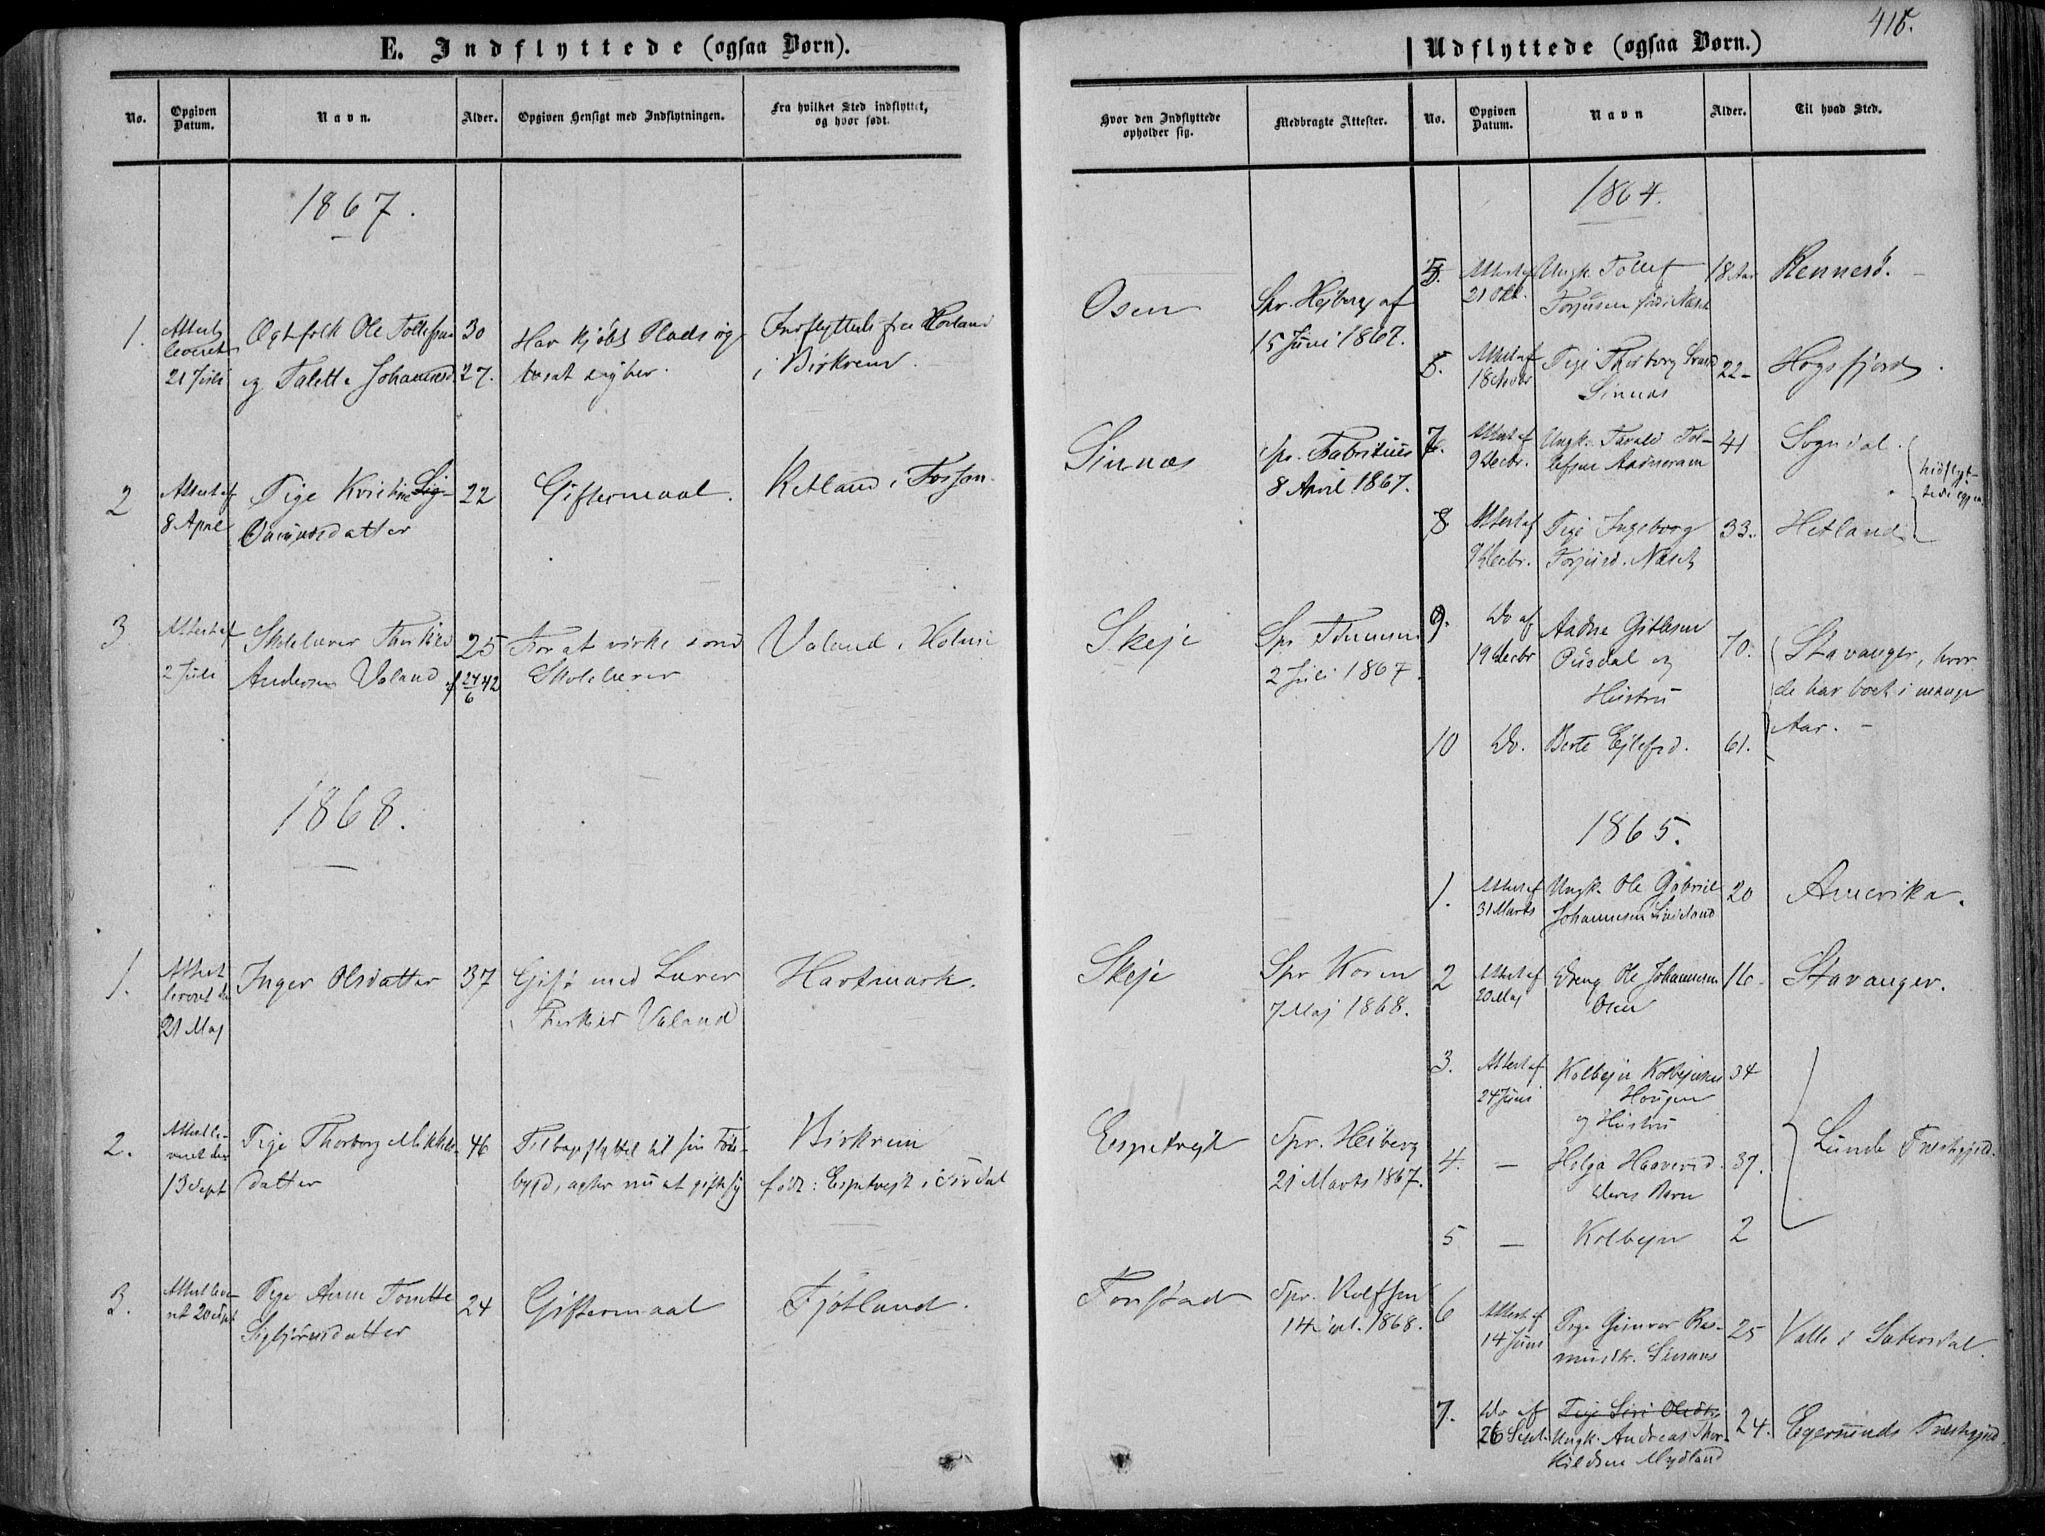 E. Indflyttede (ogsaa Børn).
No.
Opgiven
Datum.
Navn.
Alder.
Opgiven Hensigt med Indflytningen.
Fra hvilket Sted indflyttet,
og hvor født.
1867.
1.
Attest
leveret
21 Juli
Ægtefolk Ole Tollefsen
og Talette Johannesd.
30
27.
Har kjøbt Plads og
Indflyttede fra Hovland
i Birkrem.
2
Attest af
8 April
Pige Kristine Sig-
Omundsdatter
22
Giftermaal.
Ketland i Fossan.
3
Attest af
2 Juli
Skolelærer Thorkild
Andersen Valand
25
f 24/6 42
For at virke som
Skolelærer
Valand i Holme
1868.
1.
Attest
leveret d
21 Maj
Inger Olsdatter
37
Gift med Lærer
Thorkild Valand
Hartmark.
2.
Attest le-
veret den
13 Sept
Pige Thorborg Mikkels-
datter
46
Tilbageflyttet til sin Føde-
bygd, agter nu at gifte sig
Birkrem
født: Espetvejt i Sirdal
3.
Attest leve-
ret 20 Sept
Pige Anne Tonette
Sigbjørnsdatter
24
Giftermaal
Fjotland.
416.
Udflyttede (ogsaa Børn.)
Hvor den Indflyttede
opholder sig.
Medbragte Attester.
No.
Opgiven
Datum.
Navn
Alder.
Til hvad Sted.
Osen
Spr. Hejberg af
15 Juni 1867.
Sinnes
Spr. Fabritius
8 April 1867.
Skeje
Spr
2 Juli 1867.
Skeje
Spr Koren
7 Maj 1868.
Espetvejt
Spr. Heiberg
21 Marts 1867.
Fonstad
Spr. Rolfsen
14 Sept. 1868.
1864.
5.
Attest af
21 Okt.
Ungk. Tollef
Torjusen fra Næset
18 Aar
Rennesø.
6.
Attest af
18 Novbr
Pige Thorborg
Sinnes
22
Høgsfjord.
7.
Attest af
9 Decbr.
Ungk. Tarald Tol-
lefsen Aadneram
41
Sogndal.
hidflyt-
tede igjen
8
Attest af
9 Decbr.
Pige Ingeborg
Torjusd. Næset
33.
Hetland
9.
Do af
19 Decbr
Aadne Gitlesen
Ousdal og
Hustru
70.
Stavanger, hvor
de har boet i mange
Aar.
10
Do.
Berte Ejlefsd.
61.
1865.
1.
Attest af
31 Marts
Ungk. Ole Gabriel
Johannesen Lindeland
20
Amerika.
2
Attest af
20 Maj
Dreng Ole Johannesen
Osen
16
Stavanger.
3.
Attest af
24 Juni
Kolbejn Kolbejnsen
Hougen
og Hustru
34
Lunde Præstegjeld.
4.
—
Helga Haavorsd.
deres Børn
37.
5
—
Kolbejn
2
6
Attest af
14 Juni
Pige Gunvor Ras-
musdtr. Sinnes
25
Valle i Sætersdal.
7.
Do af
26 Sept.
Pige Siri Olsdtr
Ungk. Andreas Thor-
kildsen Mydland
24.
Egersunds Præstegjeld